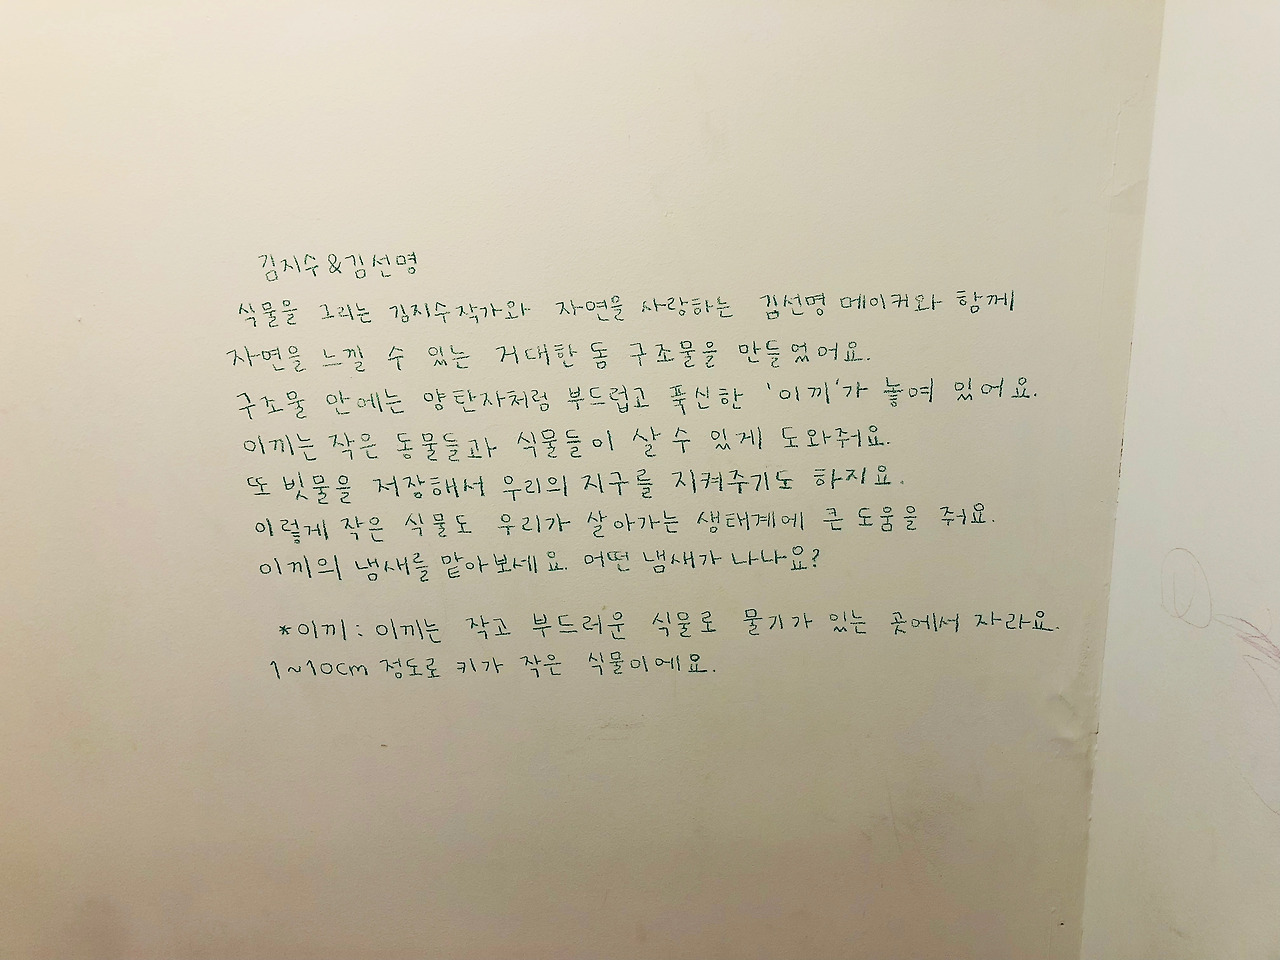 김지수&김선명
식물을 그리는 김지수작가와 자연을 사랑하는 김선명 메이커와 함께
자연을 느낄 수 있는 거대한 돔 구조물을 만들었어요.
구조물 안에는 양탄자처럼 부드럽고 푹신한 '이끼'가 놓여 있어요.
이끼는 작은 동물들과 식물들이 살 수 있게 도와줘요.
또 빗물을 저장해서 우리의 지구를 지켜주기도 하지요.
이렇게 작은 식물도 우리가 살아가는 생태계에 큰 도움을 줘요.
이끼의 냄새를 맡아보세요. 어떤 냄새가 나나요?
*이끼 : 이끼는 작고 부드러운 식물로 물기가 있는 곳에서 자라요.
1~10cm 정도로 키가 작은 식물이에요.